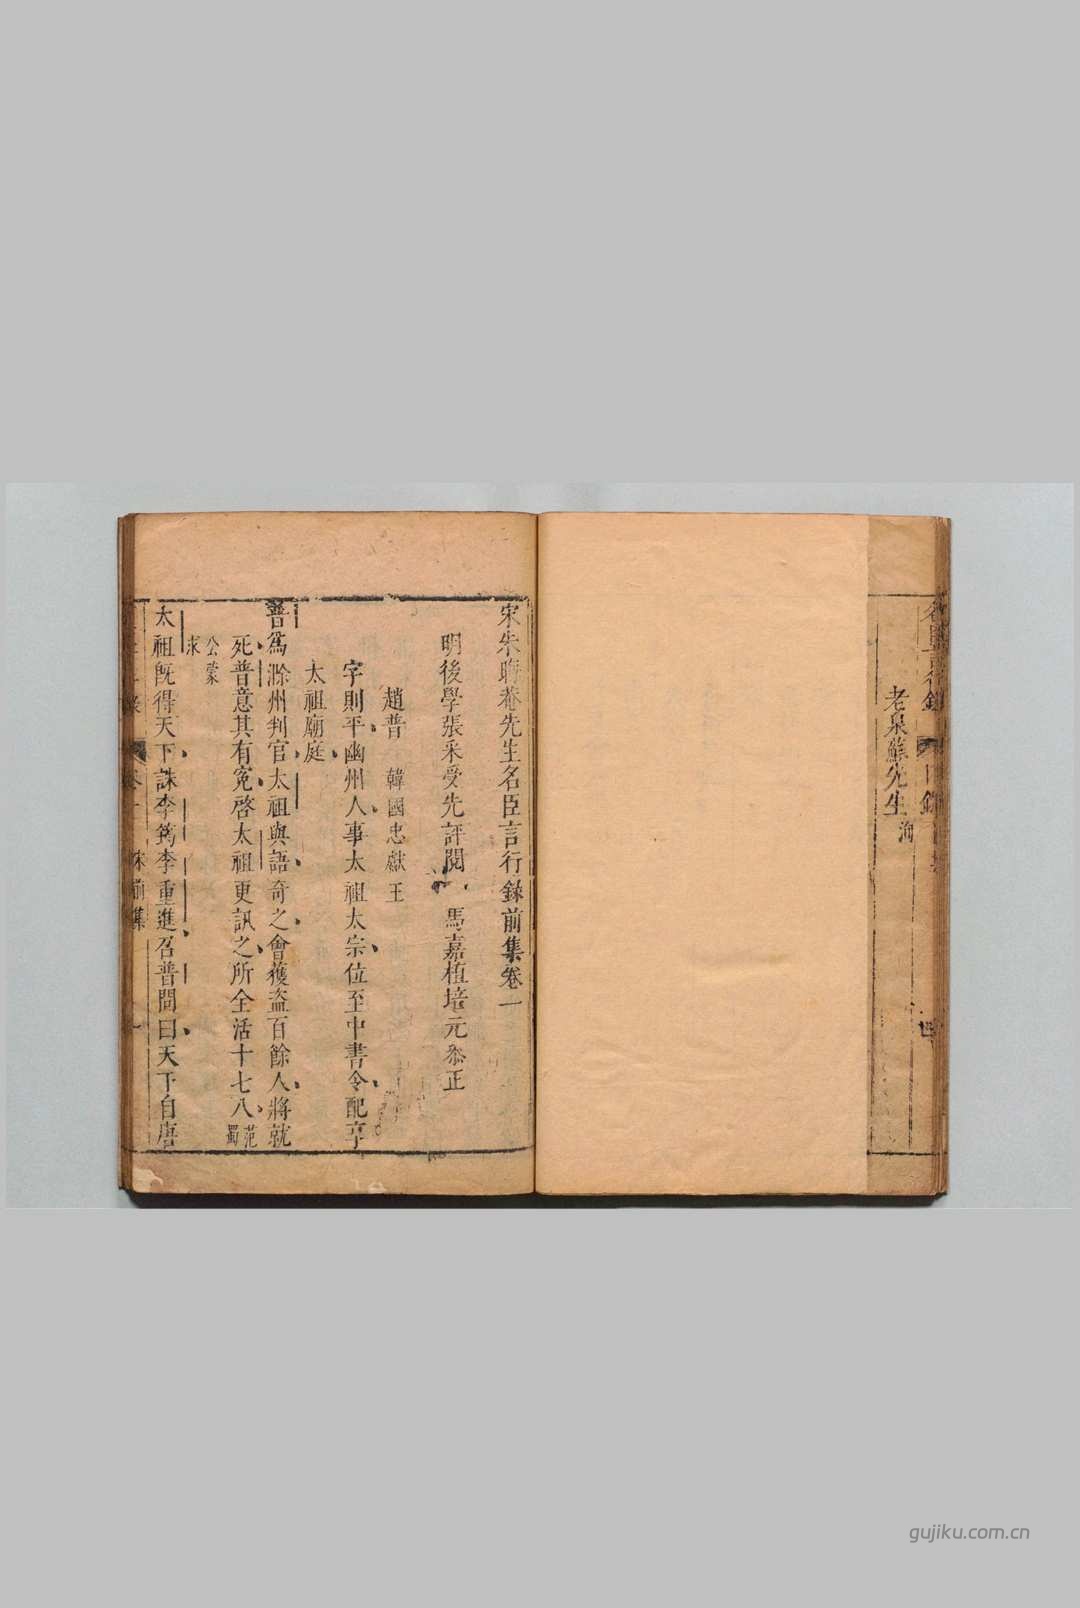 老泉蘇先生 洵
宋朱晦菴先生名臣言行錄前集卷一
明後學張采受先評閱 馬嘉植培元叅正
趙普 韓國忠獻王
字則平幽州人事太祖太宗位至中書令配享
太祖廟庭
普爲滁州判官太祖與語奇之會獲盜百餘人將就
死普意其有寃啓太祖更訊之所全活十七八 范蜀
公蒙求
太祖旣得天下誅李筠李重進召普問曰天下自唐
gujiku.com.cn